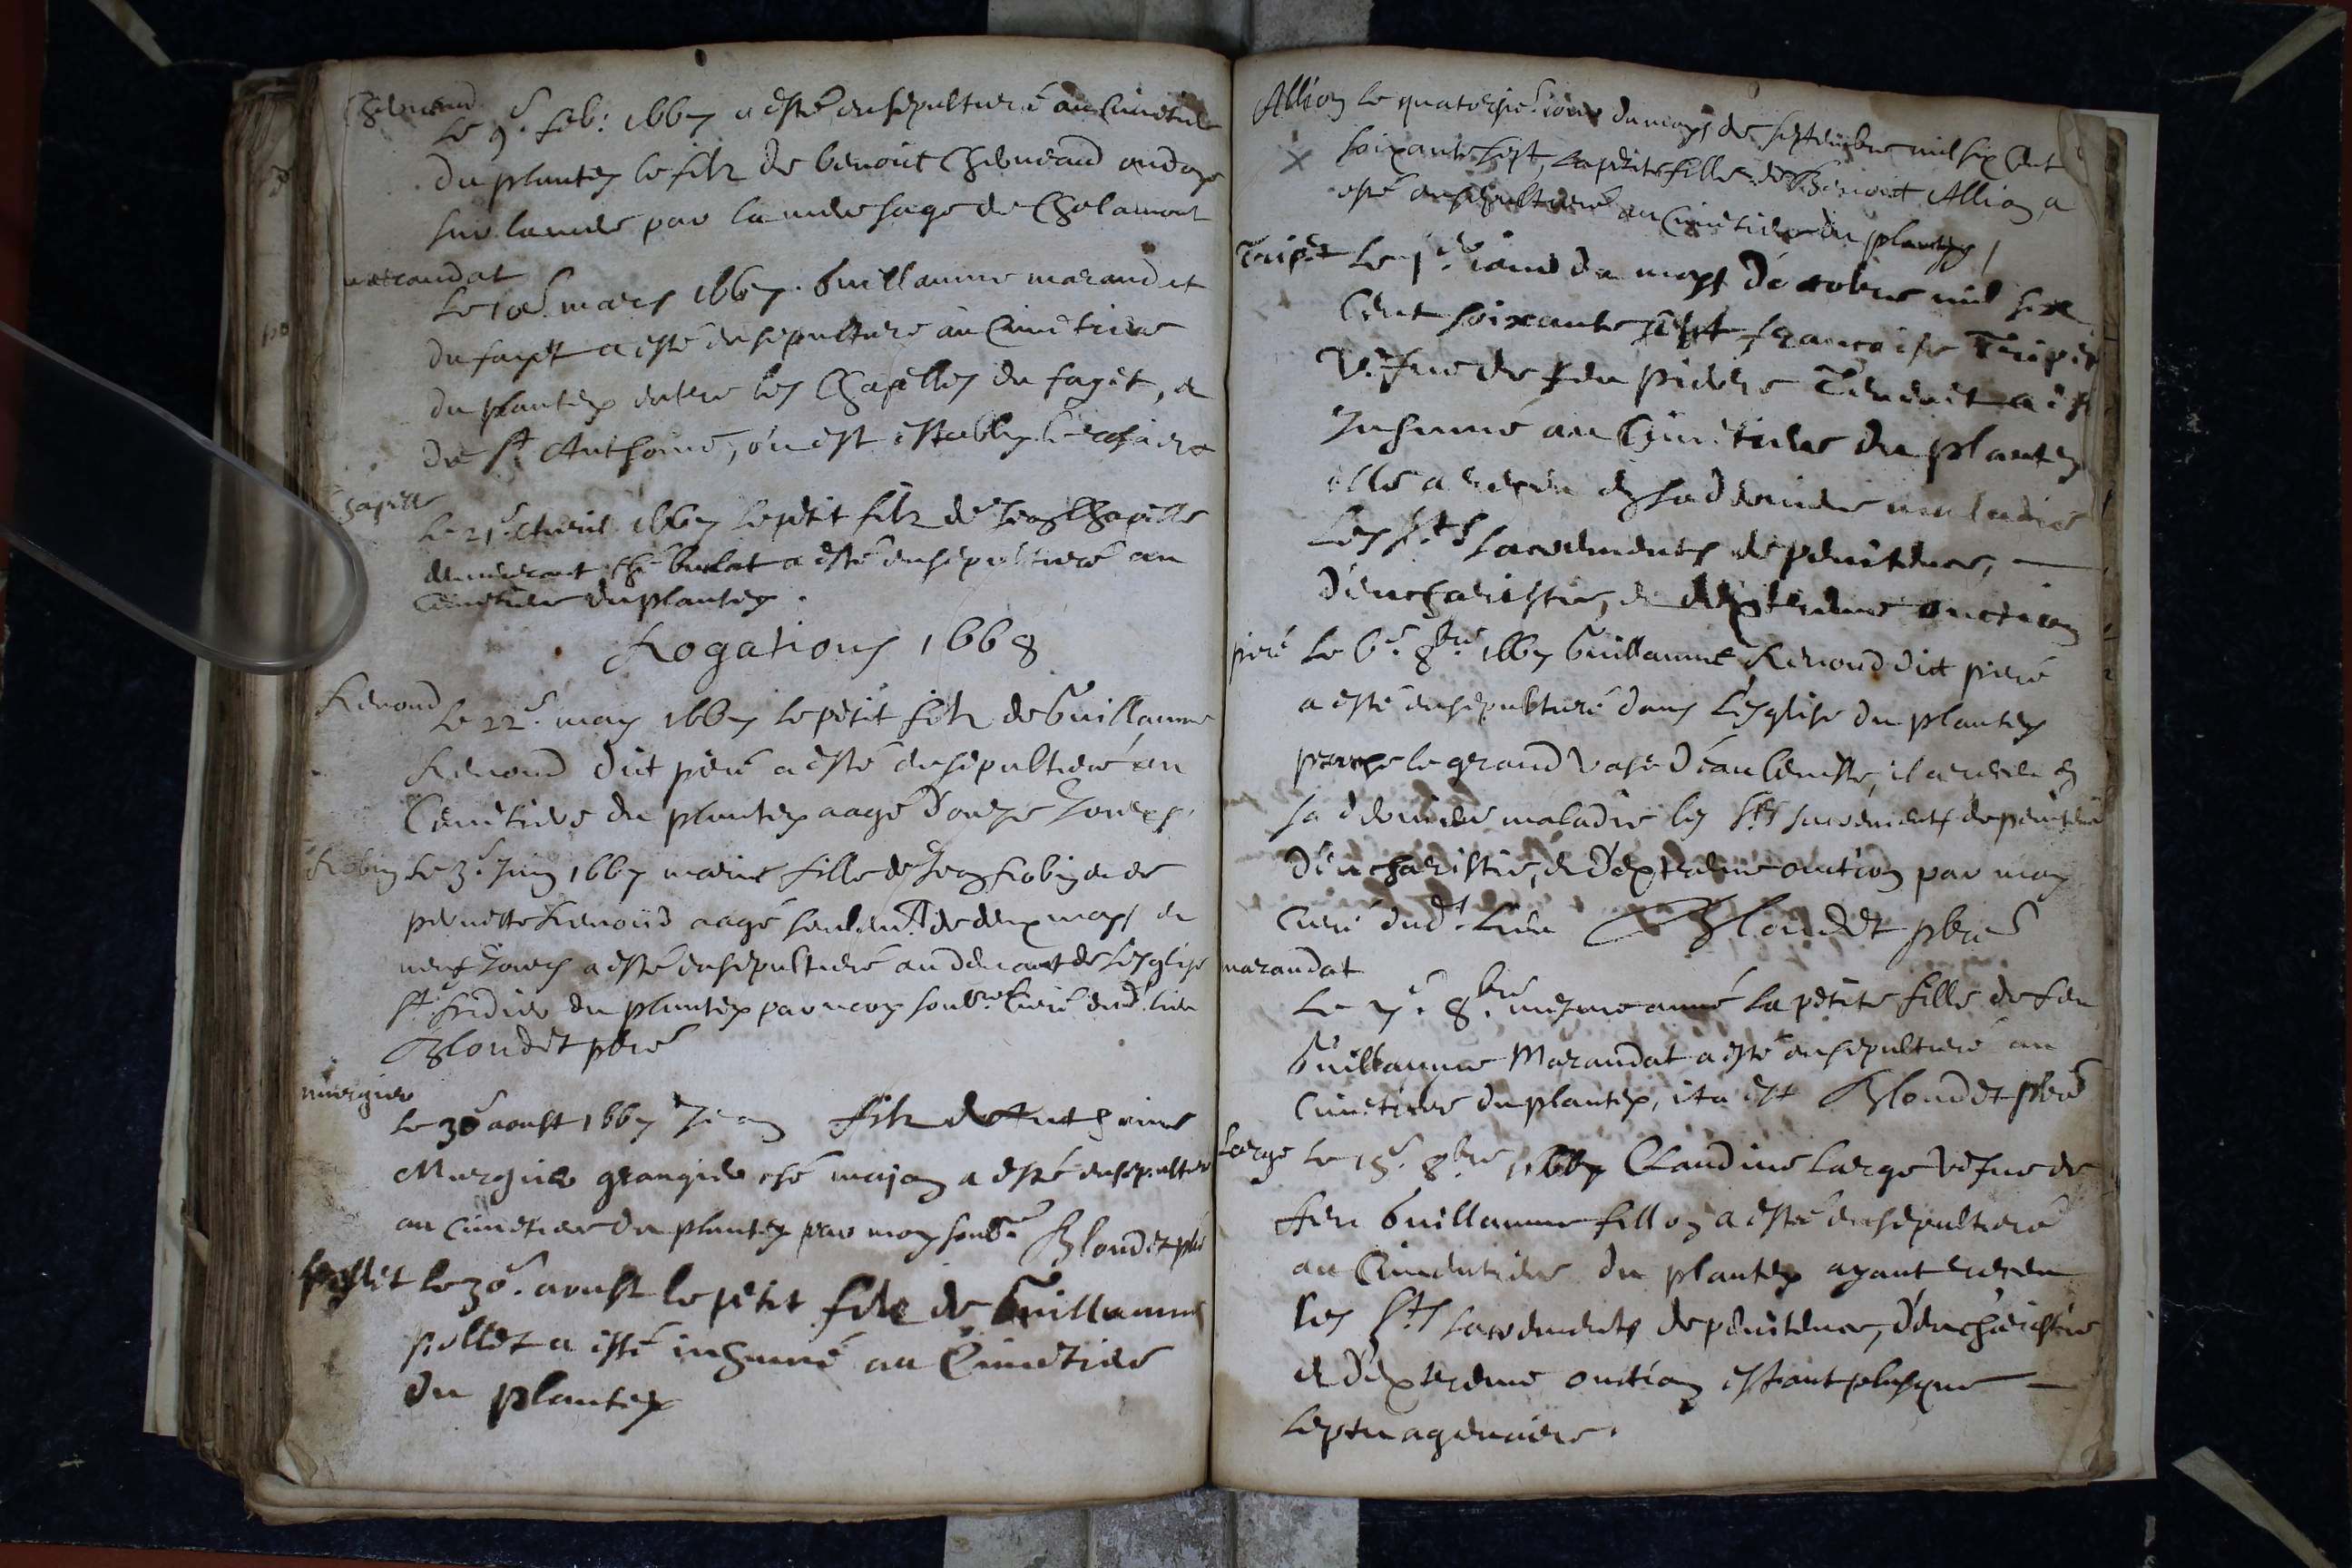 Le 9.e feb: 1667 a esté ensepulturé au Cimetiere
du plantey le filz de benoit ondoyé
par la mere sage de Chalamont
marandat
Le 10.e mars 1667. Guillaume marandat
du fayet a esté ensepulturé au Cimetiere
du plantey entre les Chapelles du fayet, et
de St Anthoine, ou est estably
Chapelle
Le 21.e Avril 1667 le petit filz de Jean Chapelle
demeurant ché burlat a esté ensepulturé au
Cimetiere du plantey.
Rogations 1668
Renoud
Le 22.e may 1667 le petit filz de Guillaume
Renoud dit piré a esté ensepulturé au
Cimetiere du plantey aagé d'onze Jours.
Robin Le 3.e Juin 1667 marie fille de Jean Robin et de
pernette Renoud aagé seulemt de deux moys et
neuf Jours a esté ensepulturé au devant de l'esglise
St du plantey par moy soubne Curé dudt lieu
Blondet pbre
murgier
Le 30 aoust 1667 Jean filz de Anthoine
Murgier grangier ché majon a esté ensepulturé
au Cimetiere du plantey par moy soubne Blondet pbre
pollet Le 30.e aoust le petit filz de Guillaume
pollet a esté inhumé au Cimetiere
du plantey
Allion Le quatorzie.e jour du moys de septembre mil six Cent
soixante sept, la petite fille de Benoict Allion a
esté ensepulturé au Cimetiere du plantey
Tripet Le 1.er jour du moys d'octobre mil six
Cent soixante sept francoise Tripet
Vefve de feu pierre a esté
Inhumé au Cimetiere du plantey
elle a receu en sa derniere maladie
Les Sts sacrements de penitence,
d'eucharistie, et d'extreme onction
piré Le 6.e 8bre 1667 Guillaume Renoud dit piré
a esté ensepulturé dans l'esglise du plantey
proche le grand vase d'eau beniste, il a receu en
sa derniere maladie les Sts sacrements de penitence
d'eucharistie, et d'extreme onction par moy
Curé dudt Lieu Blondet pbre
marandat
Le 7.e 8bre mesme anné la petite fille de feu
Guillaume Marandat a esté ensepulturé au
Cimetiere du plantey, ita est Blondet pbre
Large Le 15.e 8bre 1667 Claudine Large Vefve de
feu Guillaume fillon a esté ensepulturé
au Cimetiere du plantey ayant receu
les Sts sacrements de penitence, d'eucharistie
et d'extreme onction estant plusque
septuagenaire.